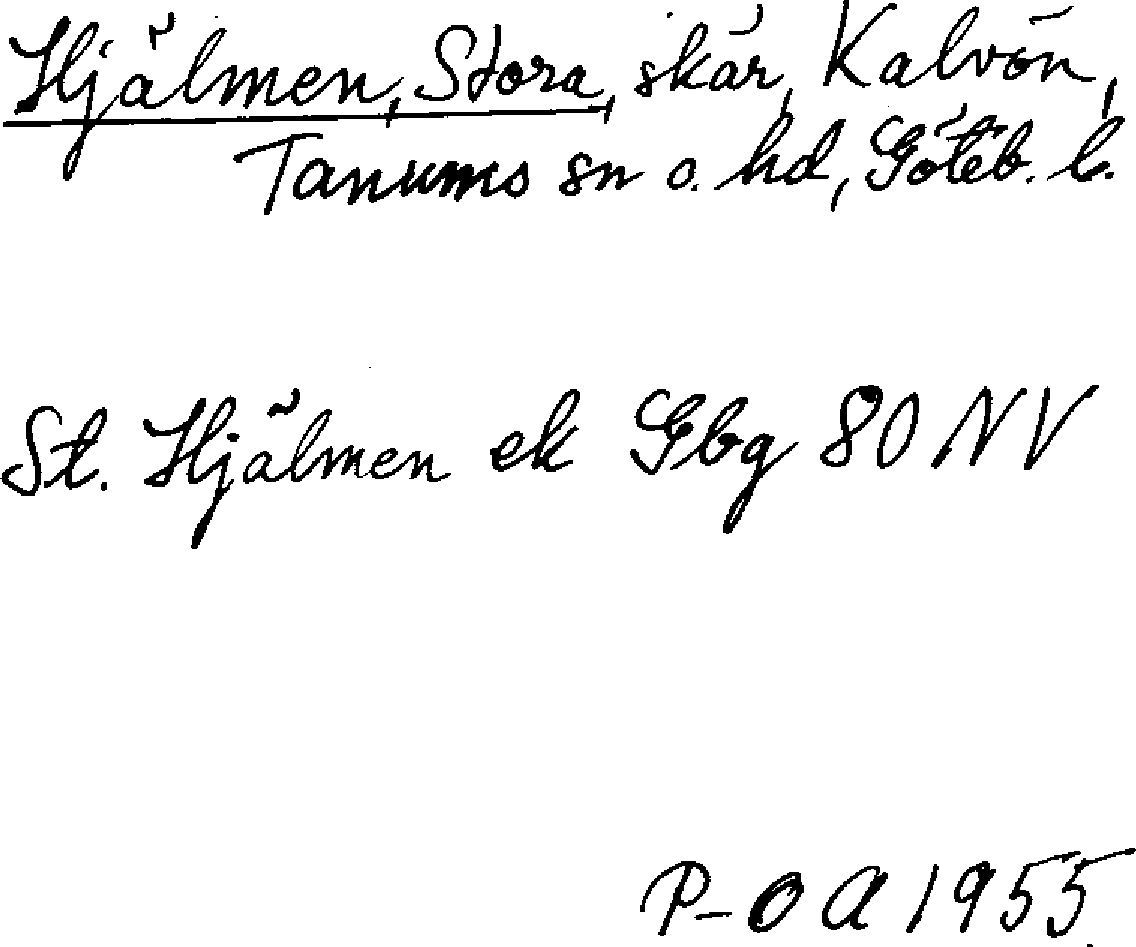 Hjälmen, Stora, skär, Kalvön,
Tanums sn o. hd, Göteb. l.
St. Hjälmen ek Gbg 80 NV
P-O A 1955